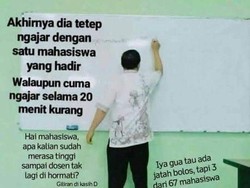 Akhirnya dia tetep
ngajar dengan
satu mahasiswa
yang hadir
Walaupun cuma
ngajar selama 20
menit kurang
Hai mahasiswa,
apa kalian sudah
merasa tinggi
sampai dosen tak
lagi di hormati?
Giliran di kasih D
Iya gua tau ada
jatah bolos, tapi 3
dari 67 mahasiswa